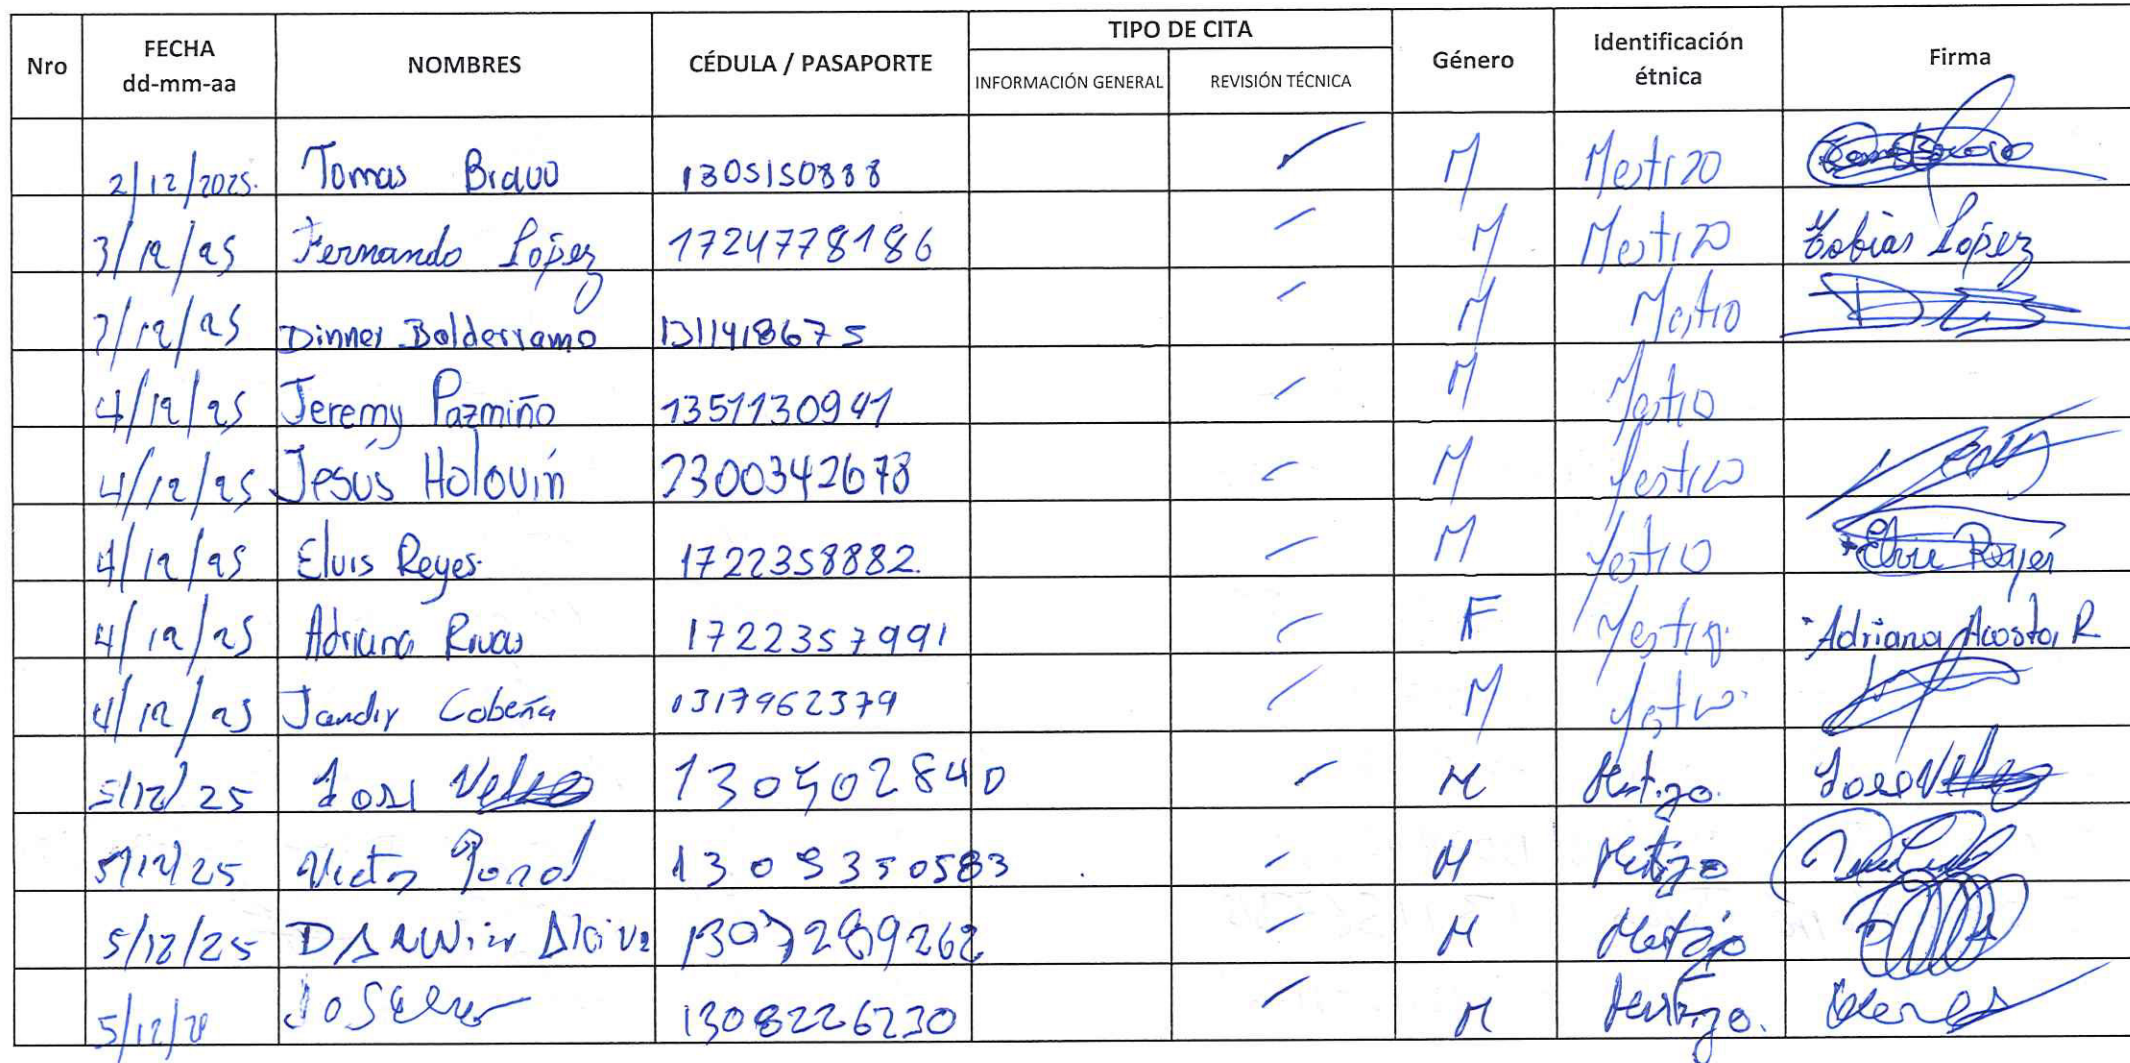 Nro FECHA dd-mm-aa NOMBRES CÉDULA / PASAPORTE TIPO DE CITA INFORMACIÓN GENERAL REVISIÓN TÉCNICA Género Identificación étnica Firma
2/12/2025. Tomas Bravo 1305150888 ✓ M Mestizo
3/12/25 Fernando López 1724778186 M Mestizo Tobias López
3/12/25 Dinner Balderramo 1311418675 M Mestizo
4/12/25 Jeremy Pazmiño 1351130941 M Mestizo
4/12/25 Jesús Holouin 2300342678 M Mestizo
4/12/25 Elvis Reyes 1722358882. M Mestizo Reyes
4/12/25 Adriana Rivas 1722357991 F Mestiza Adriana Acosta R
4/12/25 Jandry Cobeña 1317962379 M Mestizo
5/12/25 Jose 130402840 M Mestizo. Jose
5/12/25 Victor 1309350583 M Mestizo
5/12/25 DARWin Alciva 1307289262 M Mestizo
5/12/ Jose 1308226230 M Mestizo.